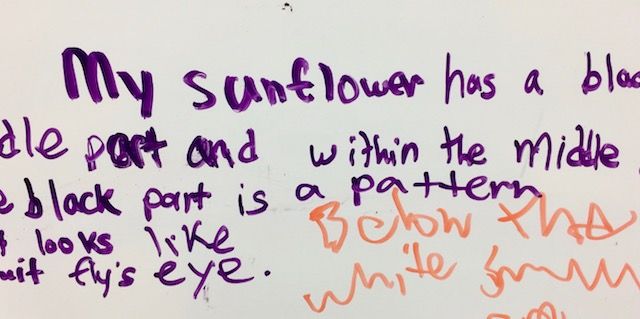 My sunflower has a blac
dle part and within the middle
e black part is a pattern
t looks like
uit fly's eye.
Below the
white